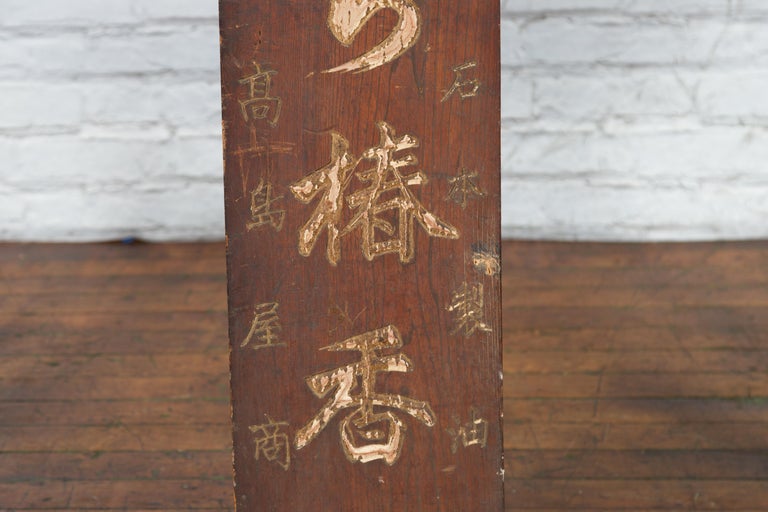 石本製油
ら椿香
高島屋商